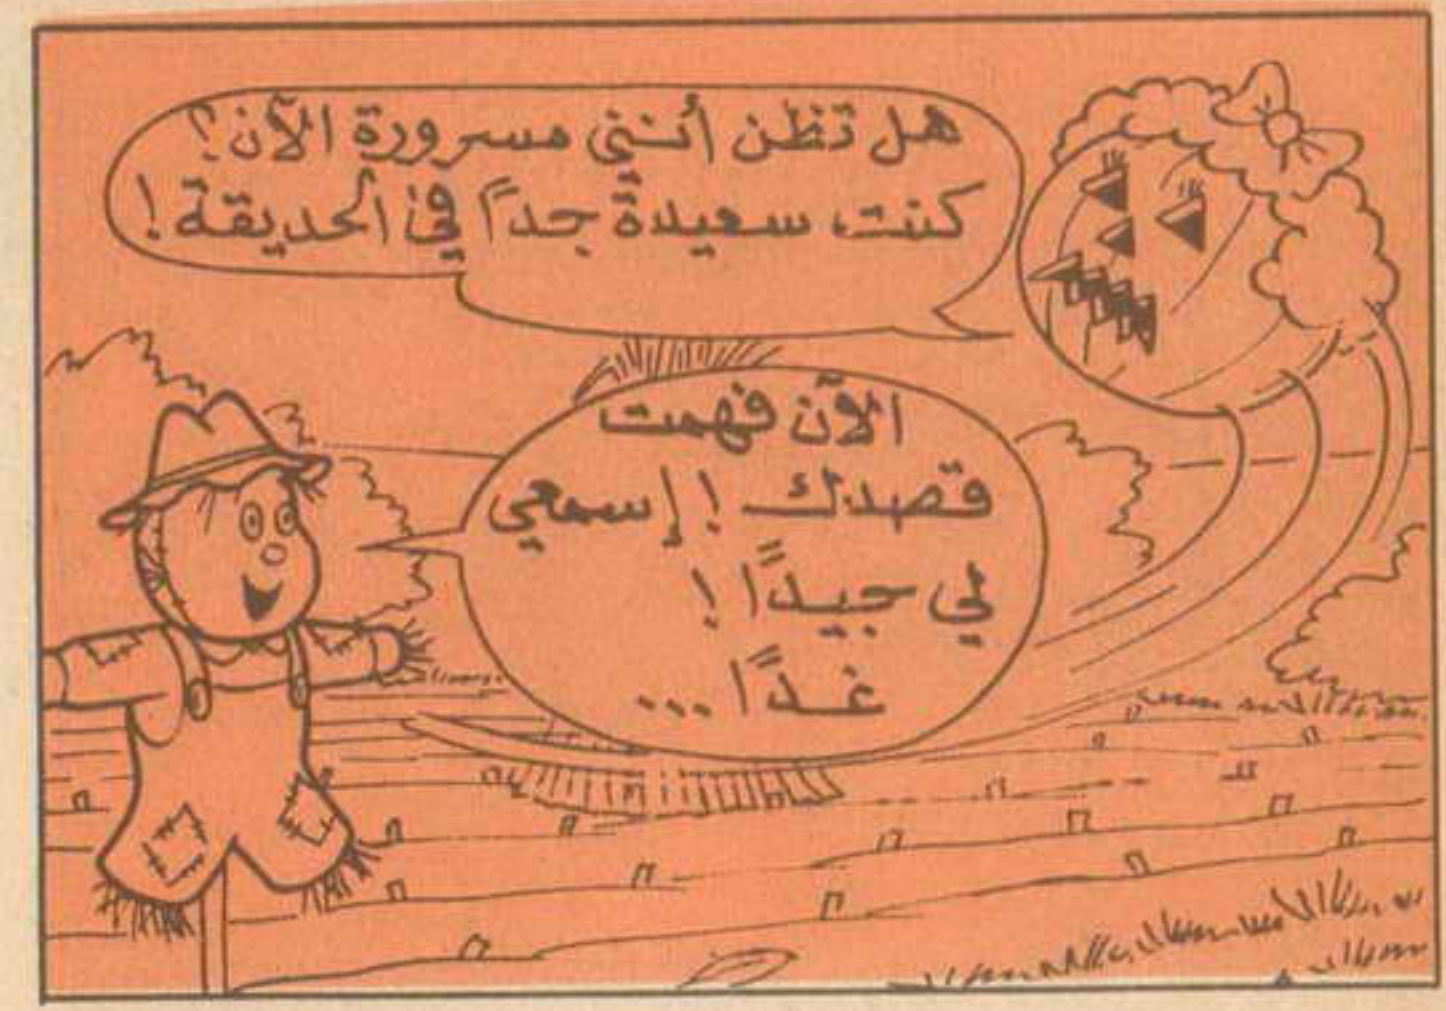 هل تظن أنني مسرورة الآن؟
كنت سعيدة جداً في الحديقة!
الآن فهمت
قصدك! إسمعي
لي جيدًا!
غدًا...